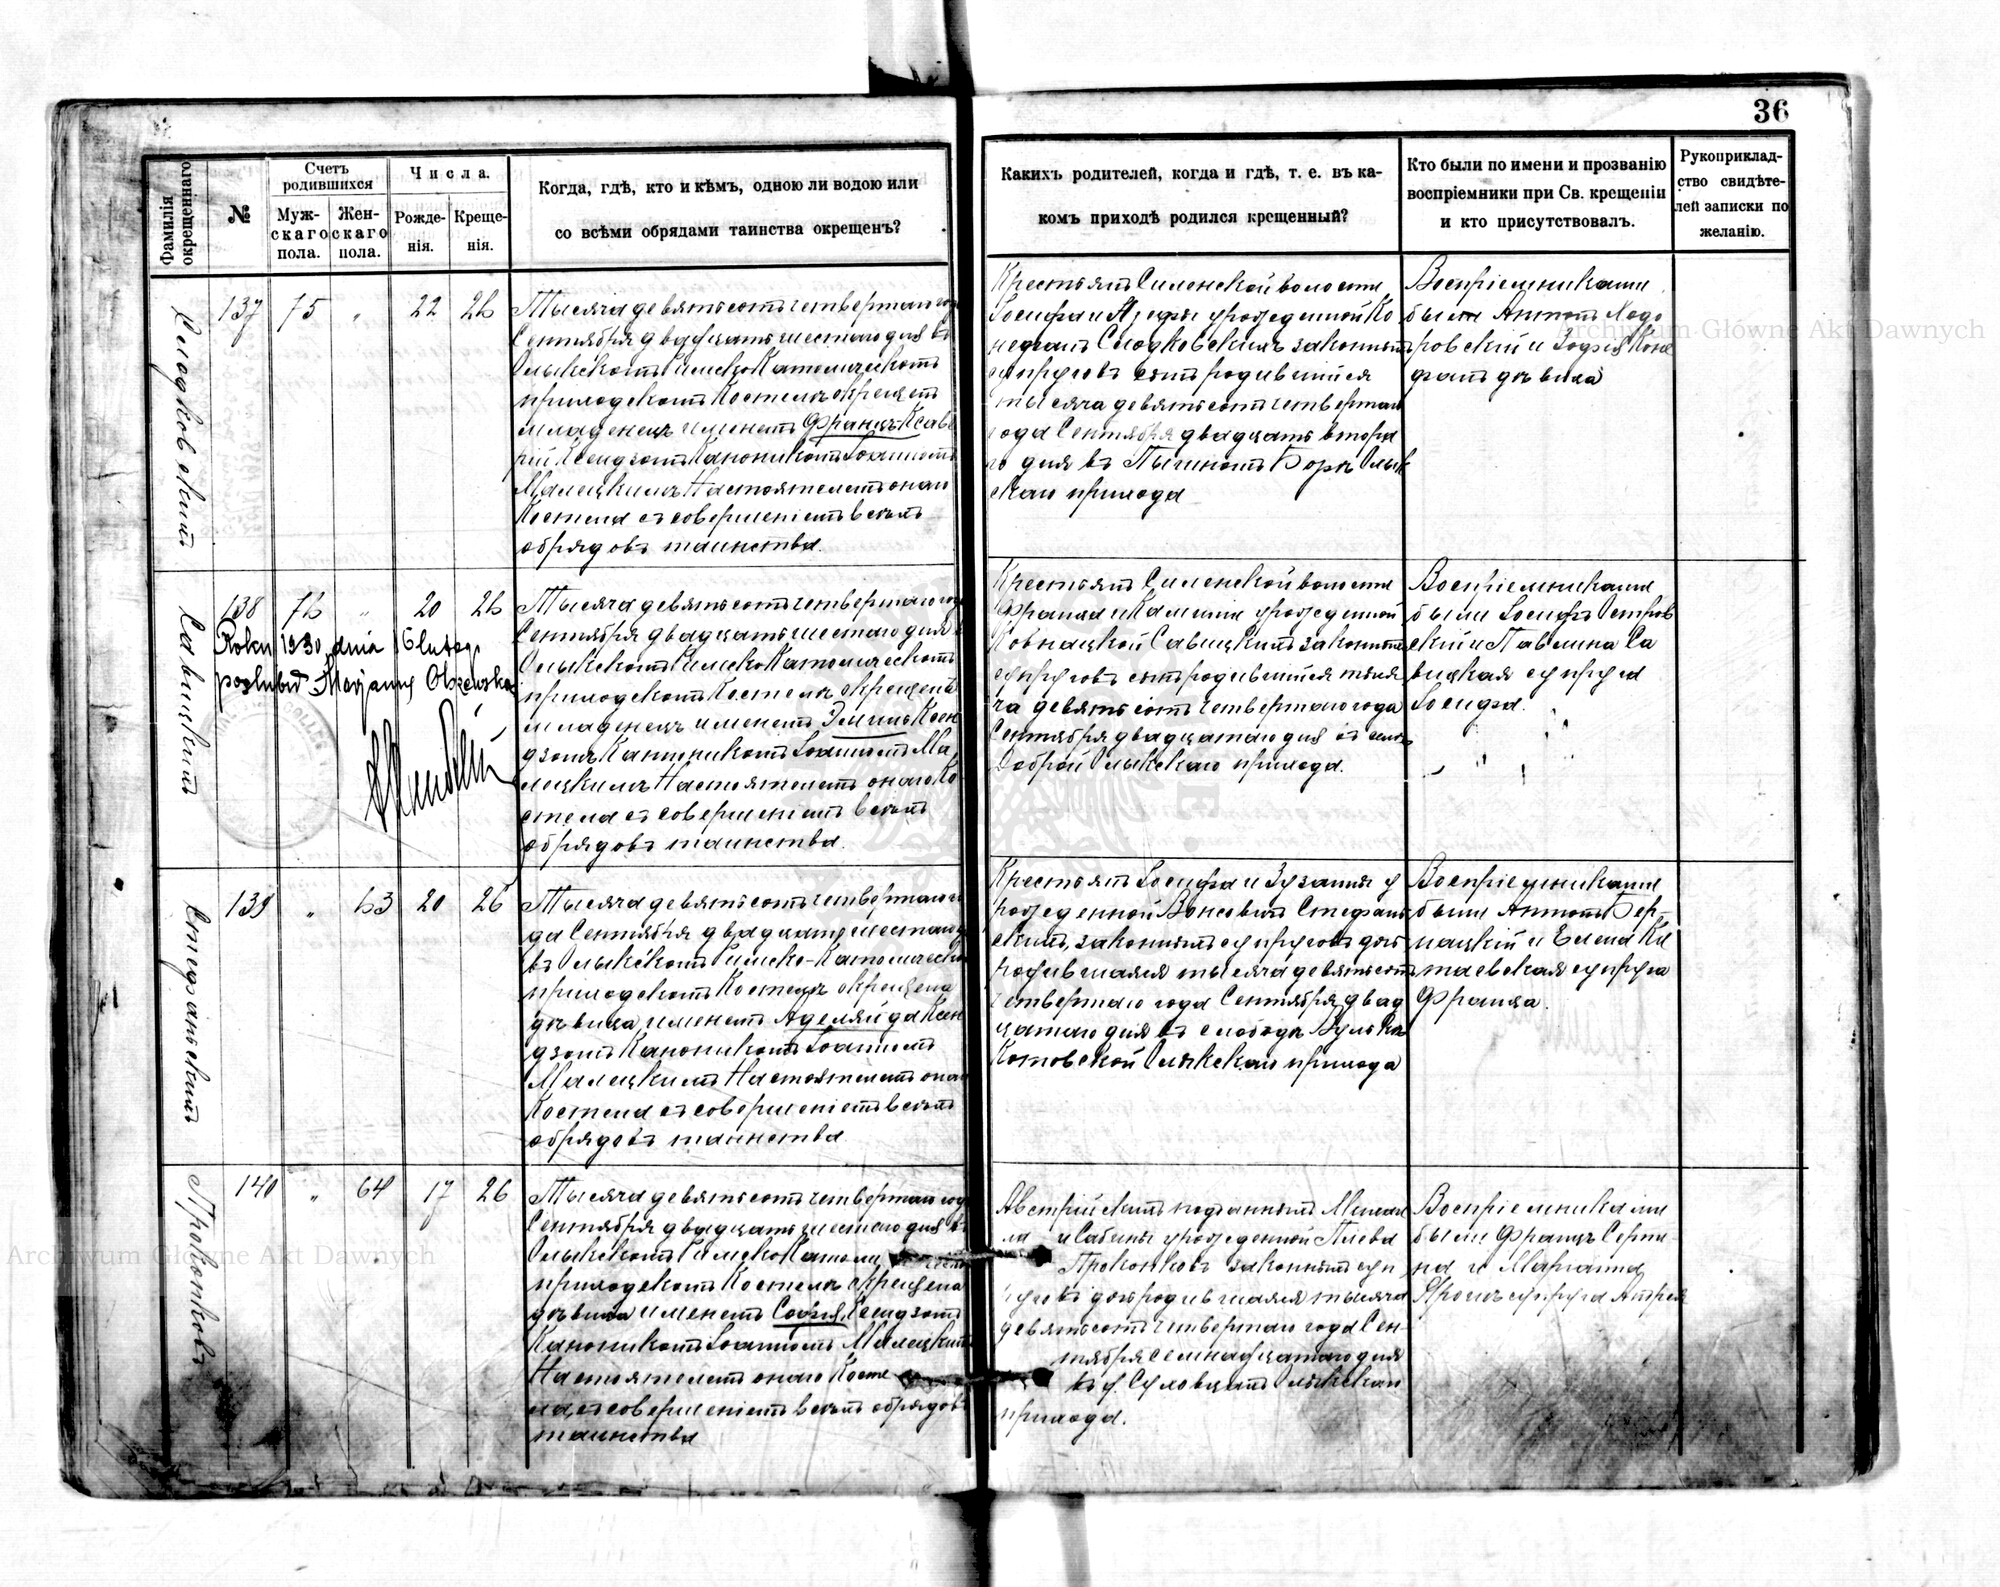 36
Фамилія окрещеннаго
№
Счетъ родившихся
Мужскаго пола.
Женскаго пола.
Числа.
Рожденія.
Крещенія.
Когда, гдѣ, кто и кѣмъ, одною ли водою или
со всѣми обрядами таинства окрещенъ?
Какихъ родителей, когда и гдѣ, т. е. въ ка-
комъ приходѣ родился крещенный?
Кто были по имени и прозванію
воспріемники при Св. крещеніи
и кто присутствовалъ.
Рукоприклад-
ство свидѣте-
лей записки по
желанію.
137 75 " 22 26
Тысяча девятьсотъ четвертаго
Сентября двадцать шестаго дня въ
Олыкскомъ Римско Католическомъ
приходскомъ Костелѣ окрещенъ
младенецъ именемъ Францъ-Ксаве
рій Ксендзомъ Каноникомъ Іоанномъ
Малецкимъ Настоятелемъ онаго
Костела съ совершеніемъ всѣхъ
обрядовъ таинства.
Крестьянъ Силенской волости
Іосифа и урожденной Ко
законныхъ
супруговъ сынъ родившійся
тысяча девятьсотъ четвертаго
года Сентября двадцать втора
го дня въ Олык
скаго прихода
Воспріемниками
были Антонъ Ходо
ровскій и Зофія
дѣвица
Савицкій
138 76 " 20 26
Roku 1930 dnia 16 lutego
poślubił Marjannę Olszewską
Тысяча девятьсотъ четвертаго года
Сентября двадцать шестаго дня въ
Олыкскомъ Римско Католическомъ
приходскомъ Костелѣ окрещенъ
младенецъ именемъ Эмиль Ксен
дзомъ Каноникомъ Іоанномъ Ма
лецкимъ Настоятелемъ онаго Ко
стела съ совершеніемъ всѣхъ
обрядовъ таинства.
Крестьянъ Силенской волости
Франца и Камиліи урожденной
Савицкихъ законныхъ
супруговъ сынъ родившійся тыся
ча девятьсотъ четвертаго года
Сентября двадцатаго дня въ селѣ
Доброй Олыкскаго прихода.
Воспріемниками
были Іосифъ Остров
скій и Павлина Са
вицкая супруга
Іосифа.
Стефанскій
139 " 63 20 26
Тысяча девятьсотъ четвертаго го
да Сентября двадцать шестаго дня
въ Олыкскомъ Римско-Католическомъ
приходскомъ Костелѣ окрещена
дѣвица именемъ Аделяйда Ксен
дзомъ Каноникомъ Іоанномъ
Малецкимъ Настоятелемъ онаго
Костела съ совершеніемъ всѣхъ
обрядовъ таинства.
Крестьянъ Іосифа и Зузанны у
рожденной Стефан
скихъ, законныхъ супруговъ дочь
родившаяся тысяча девятьсотъ
четвертаго года Сентября двад
цатаго дня въ слободѣ Вулька
Котовской Олыкскаго прихода
Воспріемниками
были Антонъ Бер-
нацкій и Елена Ки
таевская супруга
Франца.
Проконковъ
140 " 64 17 26
Тысяча девятьсотъ четвертаго года
Сентября двадцать шестаго дня въ
Олыкскомъ Римско Католическомъ
приходскомъ Костелѣ окрещена
дѣвица именемъ Софія, Ксендзомъ
Каноникомъ Іоанномъ Малецкимъ
Настоятелемъ онаго Косте
ла, съ совершеніемъ всѣхъ обрядовъ
таинства
Австрійскихъ подданныхъ Михаи
ла и Сабины урожденной
Проконковъ законныхъ суп
руговъ дочь родившаяся тысяча
девятьсотъ четвертаго года Сен-
тября семнадцатаго дня
въ Олыкскаго
прихода.
Воспріемниками
были Францъ
и Маріанна
супруга Андрея
Archiwum Główne Akt Dawnych
Archiwum Główne Akt Dawnych